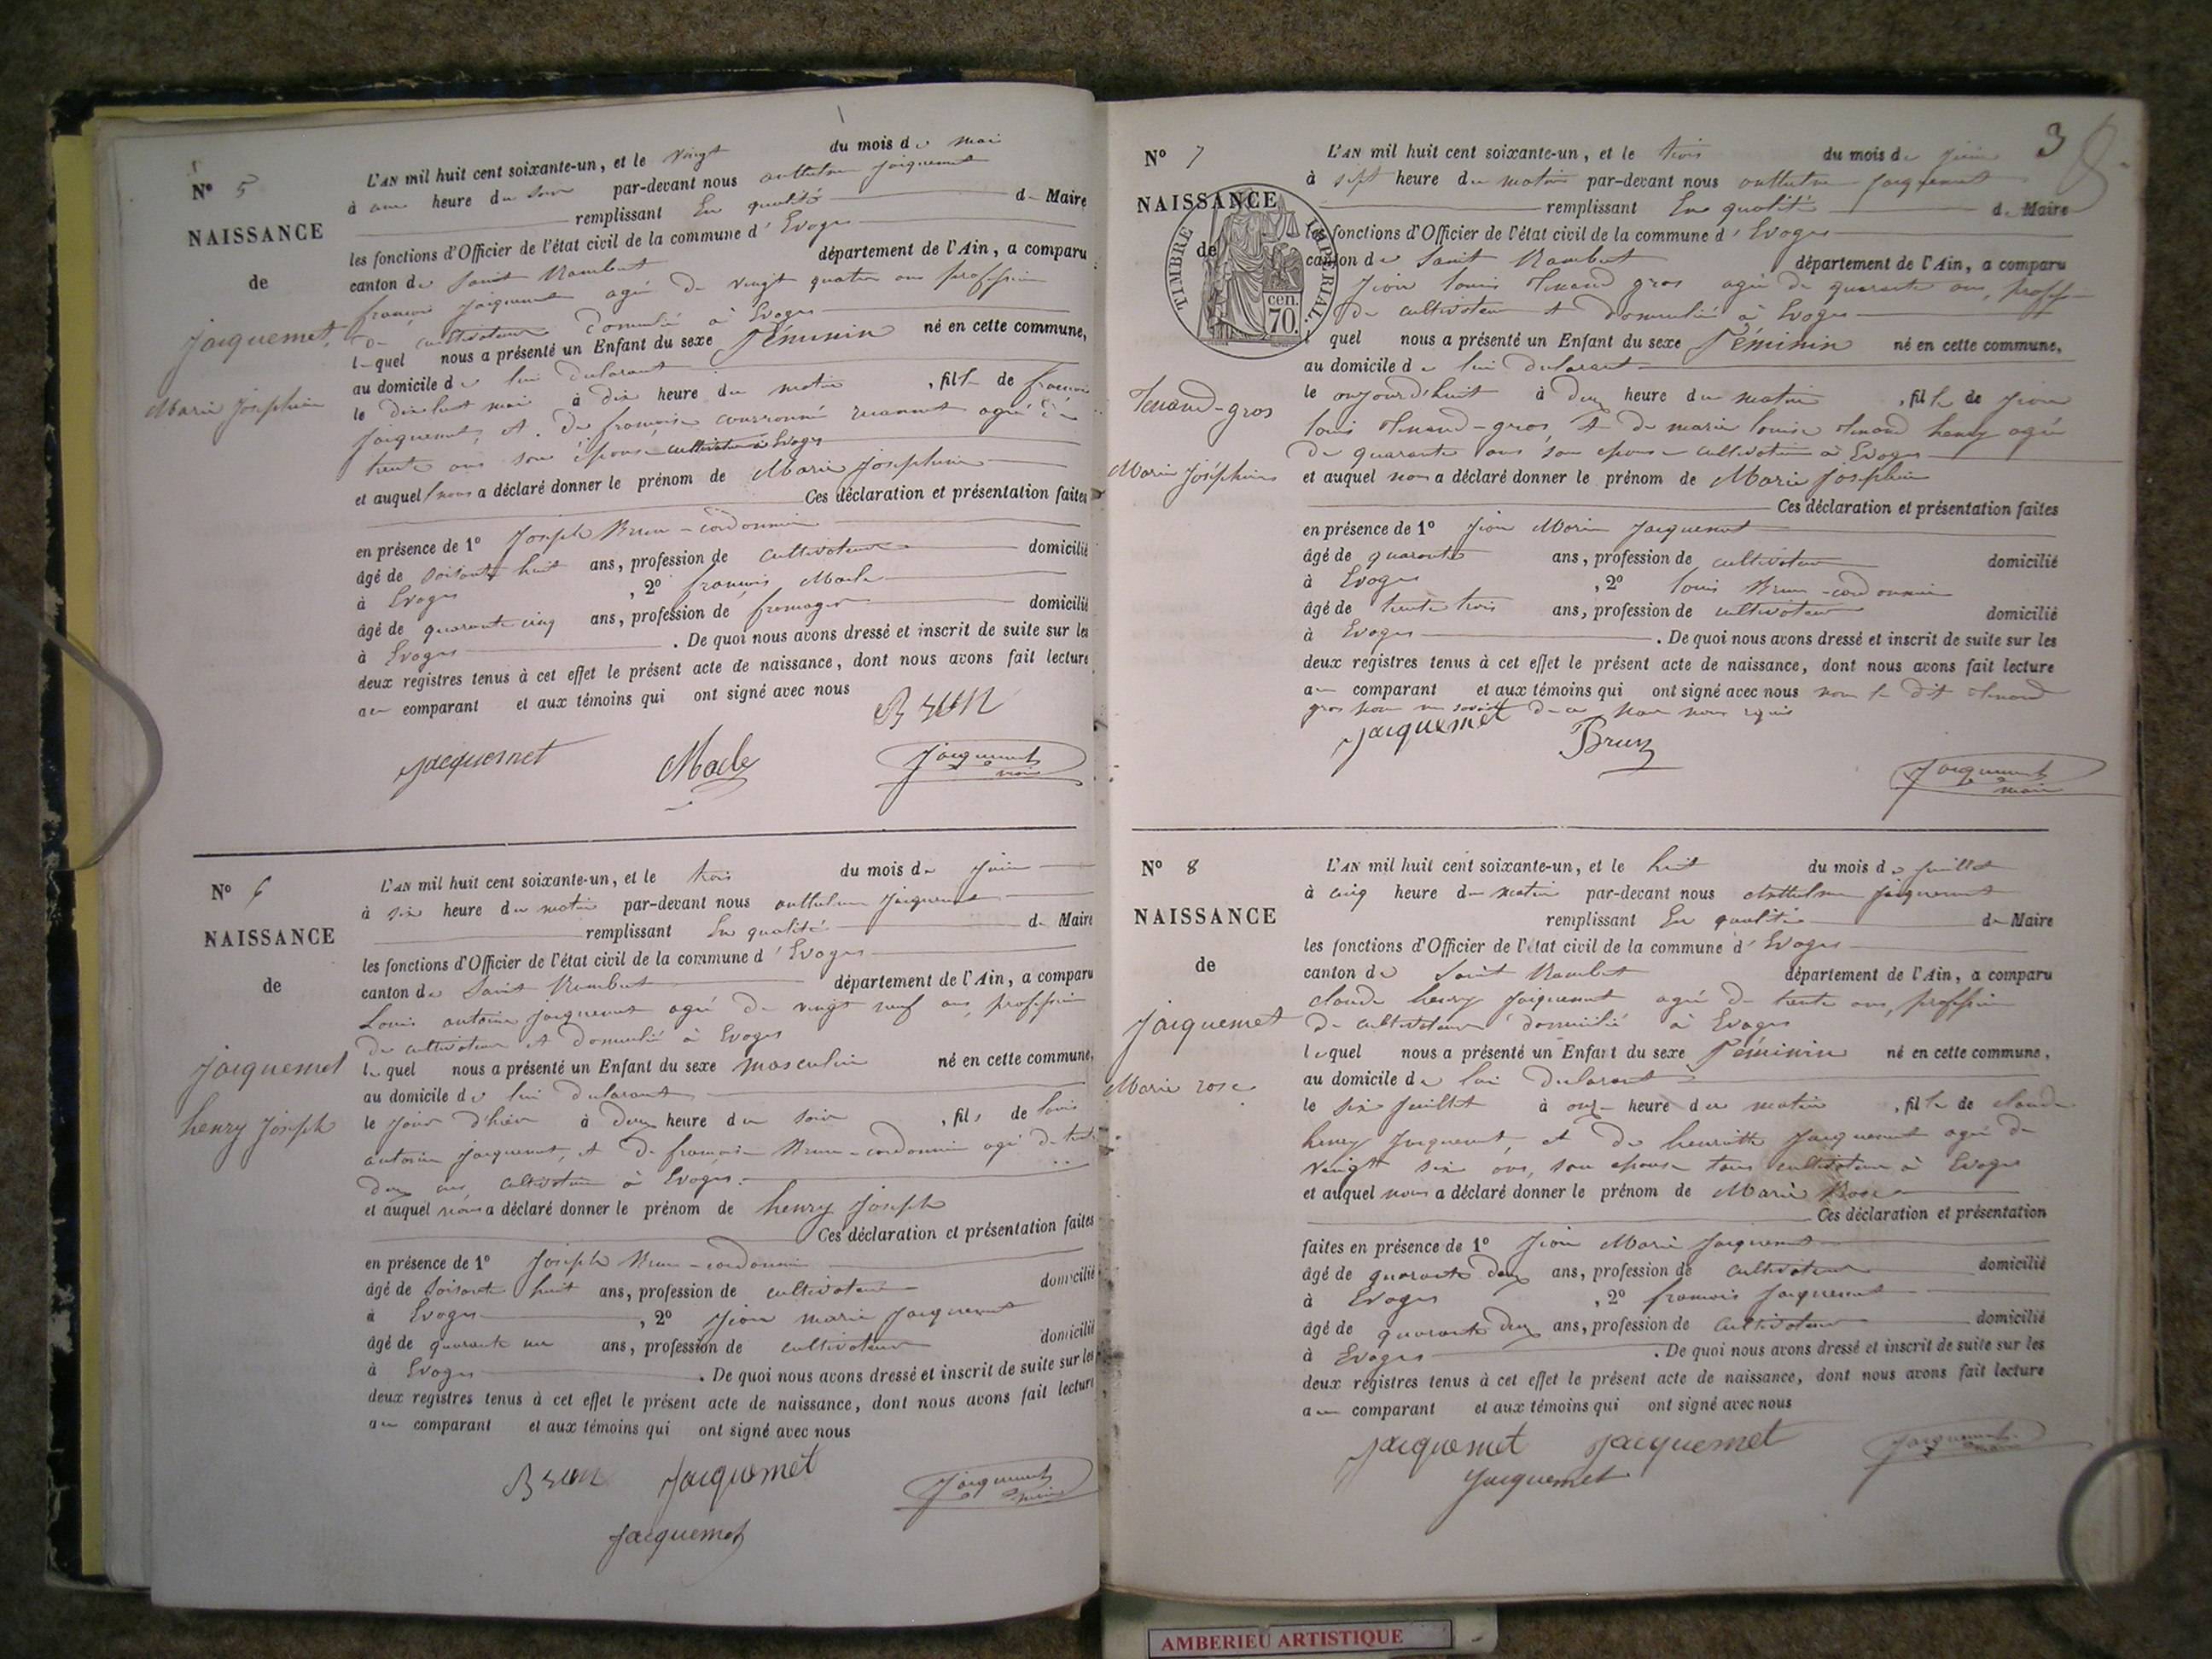 N° 5
NAISSANCE
de
Jacquemet
Marie Joséphine
L'AN mil huit cent soixante-un, et le vingt du mois de mai
à une heure du soir par-devant nous Jacquemet
remplissant En qualité de Maire
les fonctions d'Officier de l'état civil de la commune d'Evoges
canton de Saint Rambert département de l'Ain, a comparu
françois Jacquemet agé de vingt quatre ans profession
de cultivateur domicilié à Evoges
lequel nous a présenté un Enfant du sexe Féminin né en cette commune,
au domicile de lui déclarant
le dix huit mai à dix heure du matin, fille de françois
Jacquemet, et de françoise agée de
trente ans son épouse cultivateur à Evoges
et auquel nous a déclaré donner le prénom de Marie Joséphine
Ces déclaration et présentation faites
en présence de 1° Joseph Brun-cordonnier
âgé de soisante huit ans, profession de cultivateur domicilié
à Evoges, 2° françois Macle
âgé de quarante cinq ans, profession de fromager domicilié
à Evoges. De quoi nous avons dressé et inscrit de suite sur les
deux registres tenus à cet effet le présent acte de naissance, dont nous avons fait lecture
au comparant et aux témoins qui ont signé avec nous
Brun
Jacquemet Macle Jacquemet maire
N° 6
NAISSANCE
de
Jacquemet
henry Joseph
L'AN mil huit cent soixante-un, et le trois du mois de Juin
à six heure du matin par-devant nous Jacquemet
remplissant En qualité de Maire
les fonctions d'Officier de l'état civil de la commune d'Evoges
canton de Saint Rambert département de l'Ain, a comparu
Louis antoine Jacquemet agé de vingt neuf ans, profession
de cultivateur et domicilié à Evoges
lequel nous a présenté un Enfant du sexe masculin né en cette commune,
au domicile de lui déclarant
le jour d'hier à deux heure du soir, fils de louis
antoine Jacquemet, et de françoise Brun-cordonnier agé de trente
deux ans, cultivateur à Evoges.
et auquel nous a déclaré donner le prénom de henry Joseph
Ces déclaration et présentation faites
en présence de 1° Joseph Brun-cordonnier
âgé de soisante huit ans, profession de cultivateur domicilié
à Evoges, 2° Jean marie Jacquemet
âgé de quarante un ans, profession de cultivateur domicilié
à Evoges. De quoi nous avons dressé et inscrit de suite sur les
deux registres tenus à cet effet le présent acte de naissance, dont nous avons fait lecture
au comparant et aux témoins qui ont signé avec nous
Brun Jacquemet Jacquemet maire
Jacquemet
3
N° 7
NAISSANCE
de
TIMBRE IMPERIAL
cen.
70.
Tenand-gros
Marie Joséphine
L'AN mil huit cent soixante-un, et le trois du mois de Juin
à sept heure du matin par-devant nous Jacquemet
remplissant En qualité de Maire
les fonctions d'Officier de l'état civil de la commune d'Evoges
canton de Saint Rambert département de l'Ain, a comparu
Jean louis Tenand gros agé de quarante ans, profession
de cultivateur et domicilié à Evoges
lequel nous a présenté un Enfant du sexe Féminin né en cette commune,
au domicile de lui déclarant
le aujourd'huit à deux heure du matin, fille de Jean
louis Tenand-gros, et de marie louise Tenand henry agée
de quarante ans son epouse cultivateur à Evoges
et auquel nous a déclaré donner le prénom de Marie Joséphine
Ces déclaration et présentation faites
en présence de 1° Jean Marie Jacquemet
âgé de quarante ans, profession de cultivateur domicilié
à Evoges, 2° louis Brun-cordonnier
âgé de trente trois ans, profession de cultivateur domicilié
à Evoges. De quoi nous avons dressé et inscrit de suite sur les
deux registres tenus à cet effet le présent acte de naissance, dont nous avons fait lecture
au comparant et aux témoins qui ont signé avec nous non le dit Tenand
gros pour ne savoir de ce requis
Jacquemet Brun Jacquemet maire
N° 8
NAISSANCE
de
Jacquemet
Marie rose
L'AN mil huit cent soixante-un, et le huit du mois de Juillet
à cinq heure du matin par-devant nous Jacquemet
remplissant En qualité de Maire
les fonctions d'Officier de l'état civil de la commune d'Evoges
canton de Saint Rambert département de l'Ain, a comparu
claude henry Jacquemet agé de trente ans, profession
de cultivateur domicilié à Evoges
lequel nous a présenté un Enfant du sexe Féminin né en cette commune,
au domicile de lui déclarant
le six Juillet à onze heure du matin, fille de claude
henry Jacquemet, et de henriette Jacquemet agée de
vingt six ans, son epouse tous cultivateur à Evoges
et auquel nous a déclaré donner le prénom de Marie Rose
Ces déclaration et présentation
faites en présence de 1° Jean Marie Jacquemet
âgé de quarante deux ans, profession de cultivateur domicilié
à Evoges, 2° francois Jacquemet
âgé de quarante deux ans, profession de cultivateur domicilié
à Evoges. De quoi nous avons dressé et inscrit de suite sur les
deux registres tenus à cet effet le présent acte de naissance, dont nous avons fait lecture
au comparant et aux témoins qui ont signé avec nous
Jacquemet Jacquemet Jacquemet maire
Jacquemet
AMBERIEU ARTISTIQUE